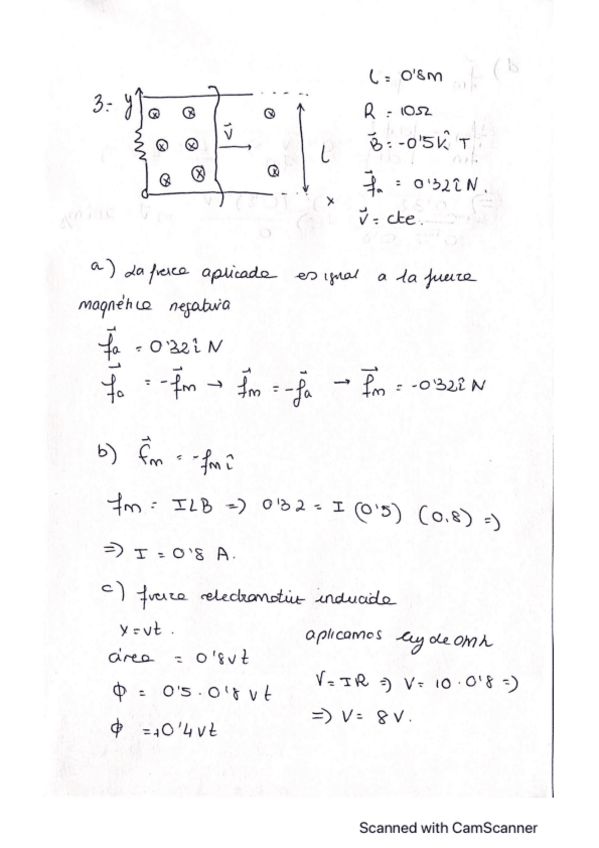 3:- y
v⃗
l
x
l = 0'8m
R = 10Ω
B⃗ = -0'5k̂ T
f⃗a = 0'32î N.
v⃗ = cte.
a) La fuerza aplicada es igual a la fuerza
magnética negativa
f⃗a = 0'32î N
f⃗a = -f⃗m → f⃗m = -f⃗a → f⃗m = -0'32î N
b) f⃗m = -fm î
fm = ILB => 0'32 = I (0'5) (0,8) =>
=> I = 0'8 A.
c) fuerza electromotriz inducida
x=vt.
área = 0'8vt
ϕ = 0'5·0'8 vt
ϕ =+0'4vt
aplicamos ley de OMH
V=IR => V= 10·0'8 =>
=> V= 8V.
Scanned with CamScanner